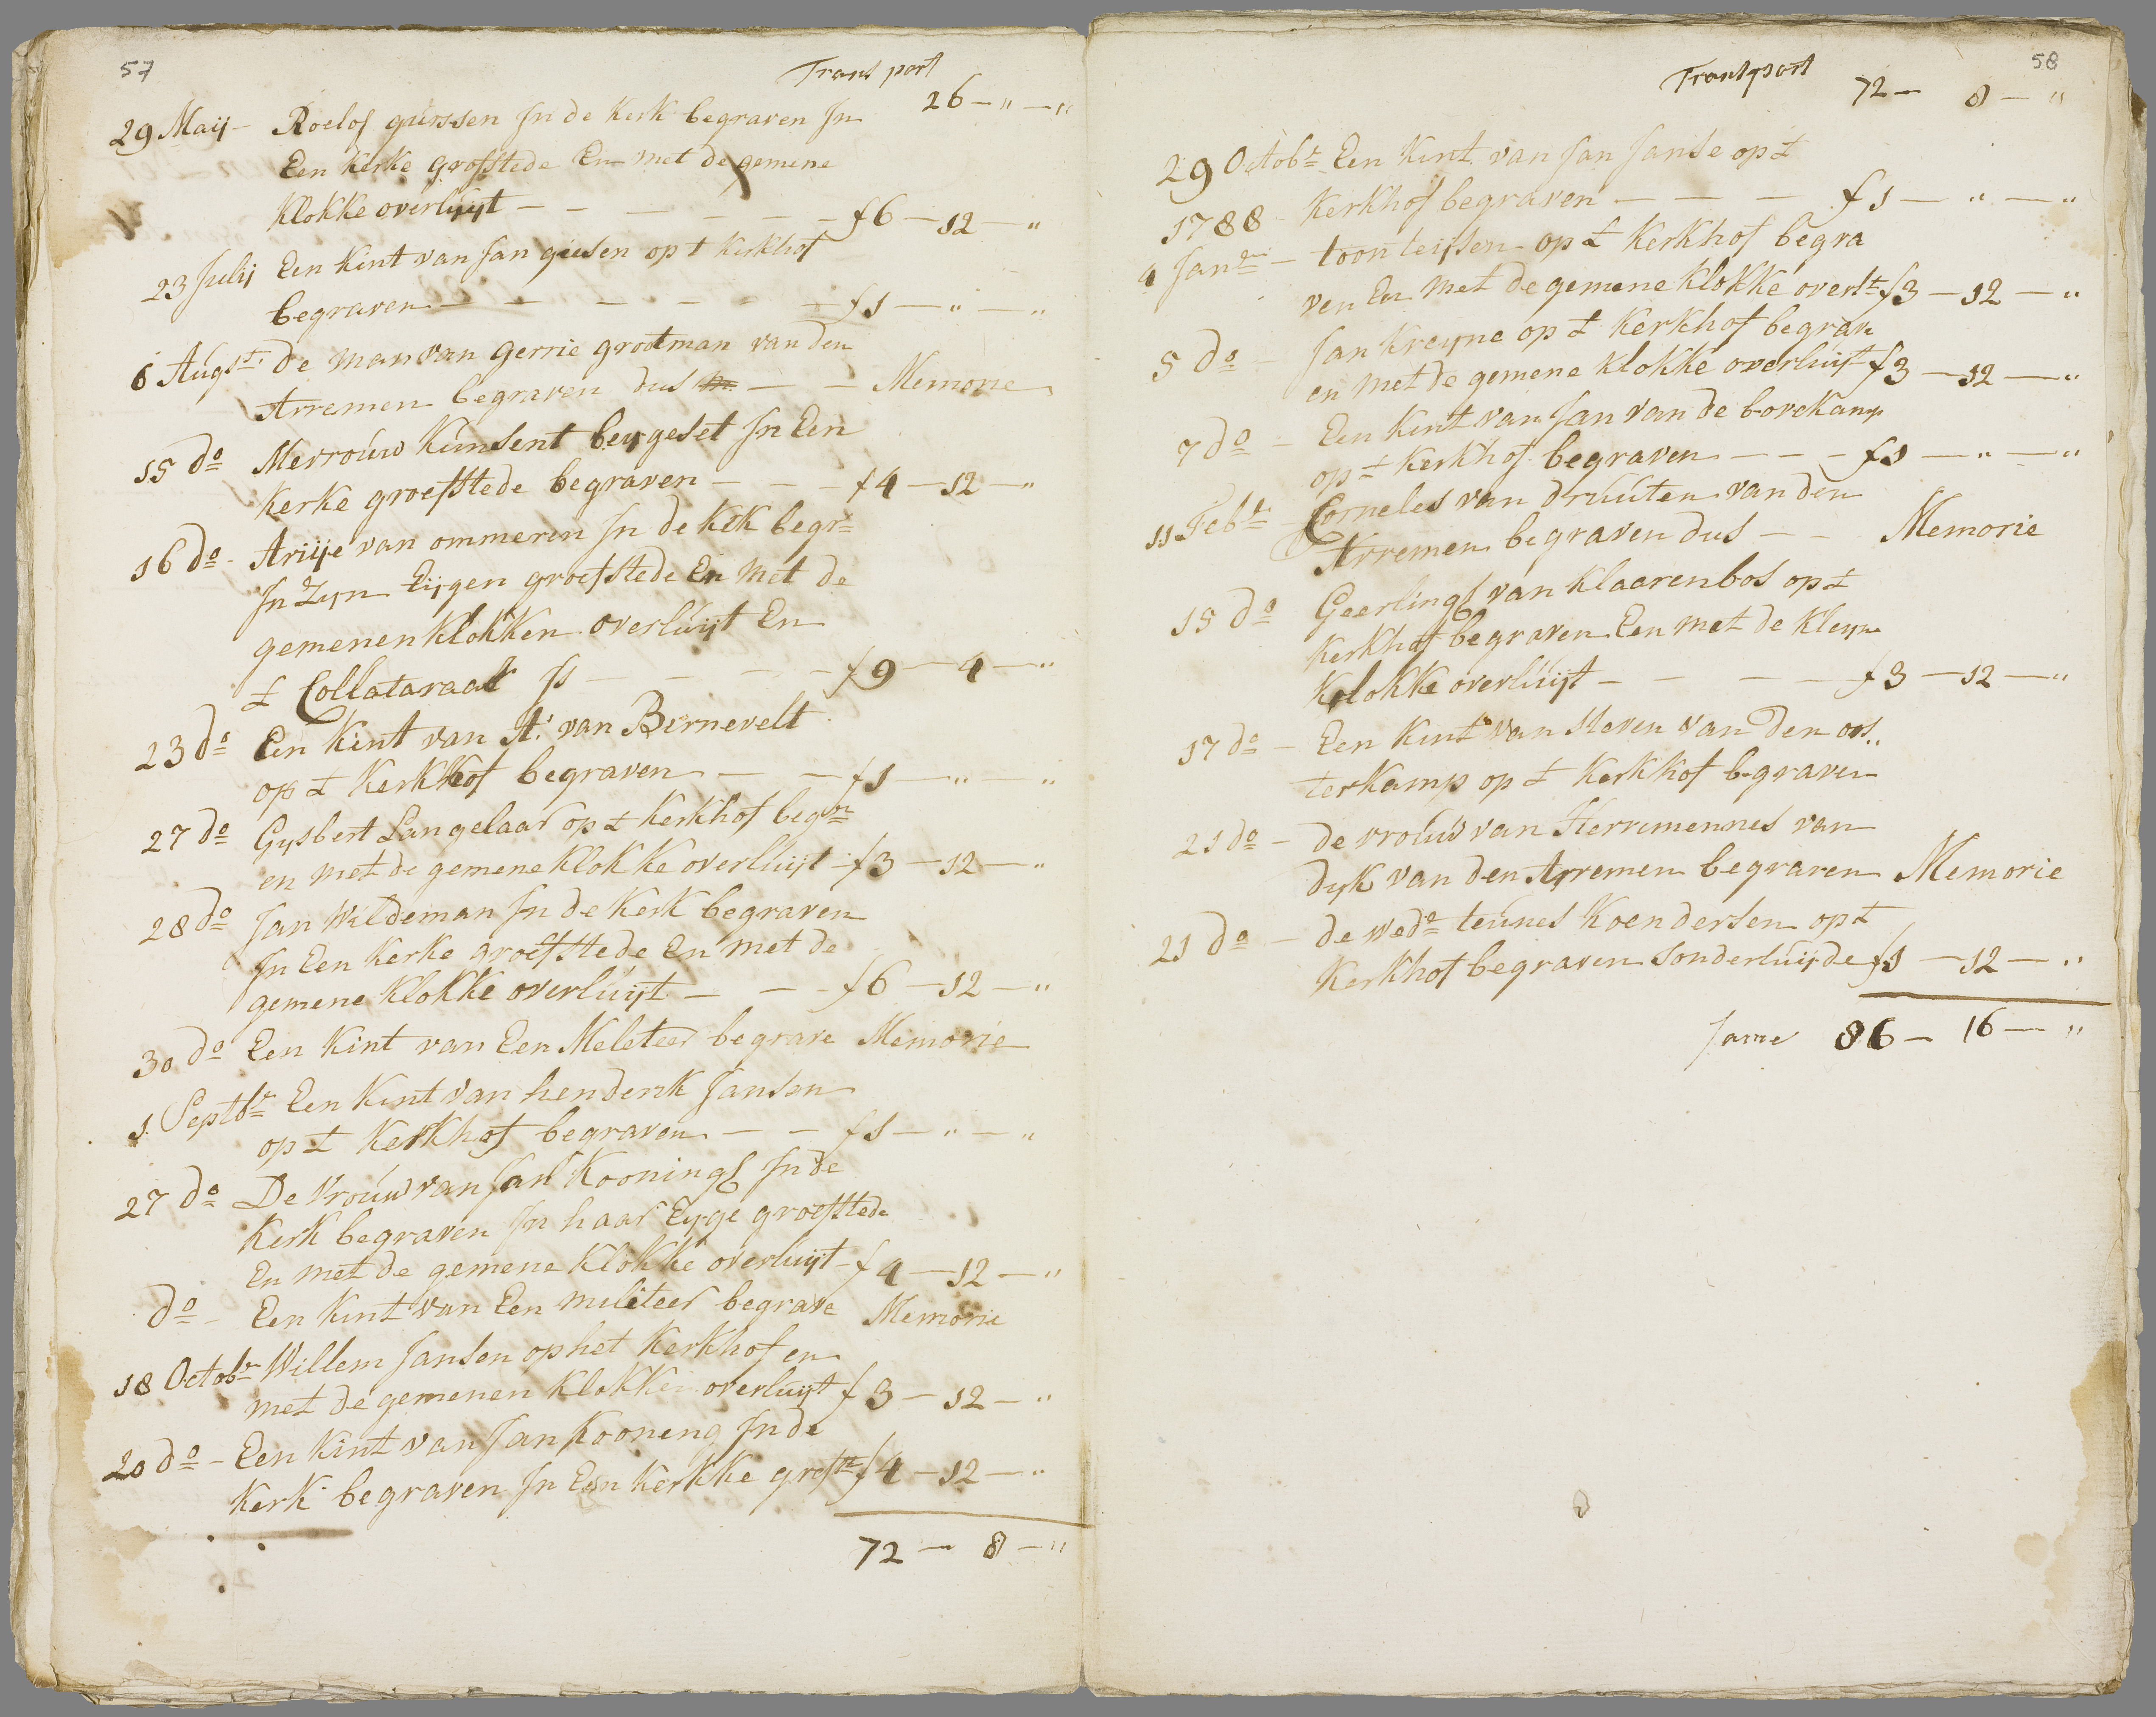 57
Transport
26 — " — "
29 Maij — Roelof gijssen In de Kerk begraven In
Een Kerke grofstede En met de gemene
Klokke overluijt — — — — — — f 6 — 12 — "
23 Julij Een Kint van Jan giesen op t Kerkhof
begraven — — — — — — f 1 — " — "
6 Augst: De man van gerrie grootman van den
Arremen begraven dus — — Memorie
15 do Mevrouw Kunsent beygeset In Een
Kerke groefstede begraven — — — f 4 — 12 — "
16 do — Ariije van ommeren In de Kerk begr=
In Zyn Eijgen groefstede En met de
gemenen Klokken overluijt En
t Collataraal Is — — — — f 9 — 4 — "
23 do Een Kint van A: van Bernevelt
op t Kerkhof begraven — — f 1 — " — "
27 do Gysbert Langelaar op t Kerkhof begrn
en met de gemene Klokke overluijt — f 3 — 12 — "
28 do Jan Wildeman In de Kerk begraven
In Een Kerke groefstede En met de
gemene Klokke overluijt — — — f 6 — 12 — "
30 do Een Kint van Een Meleteer begrave Memorie
1 Septbr Een Kint van henderik Janson
op t Kerkhof begraven — — f 1 — " — "
27 do De Vrouw van Jan Koonings In de
Kerk begraven In haar Eyge groefstede
En met de gemene Klokke overluijt — f 4 — 12 — "
do — Een Kint van Een meliteer begrave Memorie
18 Octobr Willem Jansen op het Kerkhof en
met de gemenen Klokken overluijt f 3 — 12 — "
20 do — Een Kint van Jan Kooneng In de
Kerk begraven In Een Kerkke grofste f 4 — 12 — "
72 — 8 — "
58
Transport
72 — 8 — "
29 Octobr Een Kint van Jan Janse op t
Kerkhof begraven — — — f 1 — " — "
1788
4 Janri — toon teijsen op t Kerkhof begra
ven En met de gemene Klokke overlt f 3 — 12 — "
5 do — Jan Kreyne op t Kerkhof begrav
en met de gemene Klokke overluijt f 3 — 12 — "
7 do — Een Kint van Jan van de bovekamp
op t Kerkhof begraven — — — f 1 — " — "
11 Febr Corneles van druuten van den
Arremen begraven dus — — Memorie
15 do Geerlings van Klaarenbos op t
Kerkhof begraven Een met de Kleyn
Klokke overluijt — — — — f 3 — 12 — "
17 do — Een Kint van Steven van Den oos"
terkamp op t Kerkhof begraven
21 do — de vrouw van Herremennes van
dyk van den Arremen begraven Memorie
21 do — de wede teunes Koendersen op t
Kerkhof begraven sonder luijde f 1 — 12 — "
Same 86 — 16 — "